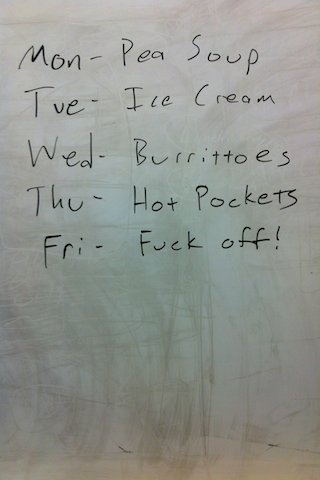 Mon- Pea Soup
Tue- Ice Cream
Wed- Burrittoes
Thu- Hot Pockets
Fri- Fuck off!